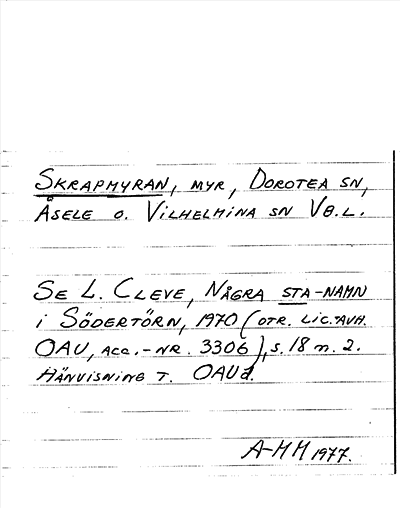 SKRAPMYRAN, MYR, DOROTEA SN,
ÅSELE O. VILHELMINA SN VB.L.
SE L. CLEVE, NÅGRA STA-NAMN
I SÖDERTÖRN, 1970 (OTR. LIC.AVH.
OAU, ACC.-NR. 3306), S. 18 M. 2.
HÄNVISNING T. OAU
A-MM 1977.